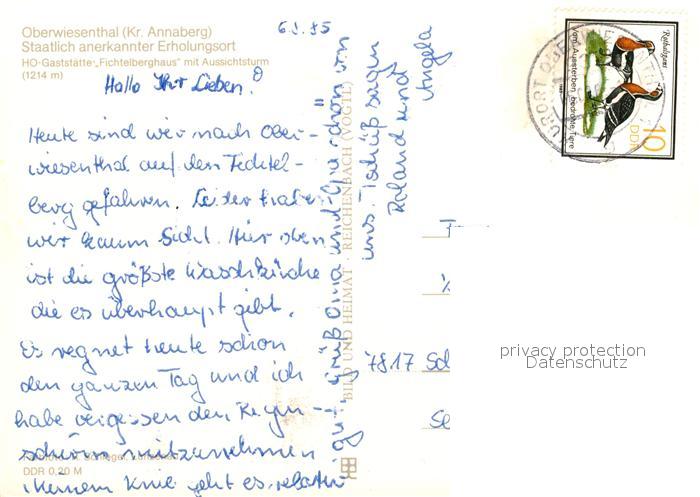 Oberwiesenthal (Kr. Annaberg)
Staatlich anerkannter Erholungsort
HO-Gaststätte „Fichtelberghaus" mit Aussichtsturm
(1214 m)
Hallo Ihr Lieben!
Heute sind wir nach Ober-
wiesenthal auf den Fichtel-
berg gefahren. Leider haben
wir kaum Sicht. Hier oben
ist die größte Waschküche
die es überhaupt gibt.
Es regnet heute schon
den ganzen Tag und ich
habe vergessen den Regen-
schirm mitzunehmen
Meinem Knie geht es relativ
gut. Grüß Oma und Opa schön von
uns. Tschüß sagen
Roland und
Angela
DDR 0,20 M
BILD UND HEIMAT · REICHENBACH (VOGTL)
Rothalsgans
Vom Aussterben bedrohte Tiere
10
DDR
KURORT OBE
7817 Sch
Se
privacy protection
Datenschutz